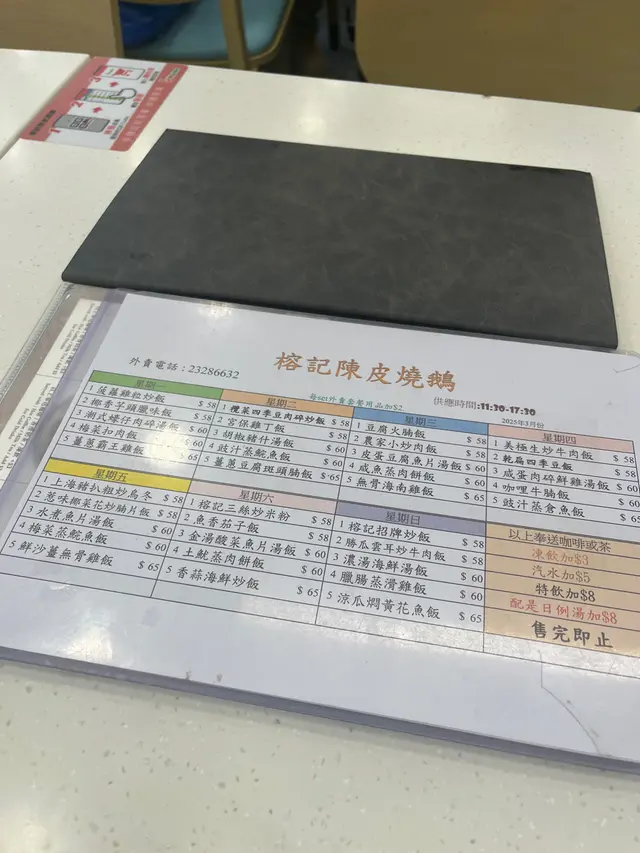 榕記陳皮燒鵝
外賣電話：23286632
每set外賣套餐用品加$2
供應時間:11:30-17:30
2025年3月份
星期一
1 菠蘿雞粒炒飯 $ 58
2 椰香芋頭臘味飯 $ 58
3 潮式蠔仔肉碎湯飯 $ 60
4 梅菜扣肉飯 $ 60
5 薑蔥霸王雞飯 $ 65
星期二
1 欖菜四季豆肉碎炒飯 $ 58
2 宮保雞丁飯 $ 58
3 胡椒豬什湯飯 $ 60
4 豉汁蒸鯇魚飯 $ 60
5 薑蔥豆腐斑頭腩飯 $ 65
星期三
1 豆腐火腩飯 $ 58
2 農家小炒肉飯 $ 58
3 皮蛋豆腐魚片湯飯 $ 60
4 咸魚蒸肉餅飯 $ 60
5 無骨海南雞飯 $ 65
星期四
1 美極生炒牛肉飯 $ 58
2 乾扁四季豆飯 $ 58
3 咸蛋肉碎鮮雞湯飯 $ 60
4 咖哩牛腩飯 $ 60
5 豉汁蒸倉魚飯 $ 65
星期五
1 上海豬扒粗炒烏冬 $ 58
2 蔥味椰菜花炒腩片飯 $ 58
3 水煮魚片湯飯 $ 60
4 梅菜蒸鯇魚飯 $ 60
5 鮮沙薑無骨雞飯 $ 65
星期六
1 榕記三絲炒米粉 $ 58
2 魚香茄子飯 $ 58
3 金湯酸菜魚片湯飯 $ 60
4 土魷蒸肉餅飯 $ 60
5 香蒜海鮮炒飯 $ 65
星期日
1 榕記招牌炒飯 $ 58
2 勝瓜雲耳炒牛肉飯 $ 58
3 濃湯海鮮湯飯 $ 60
4 臘腸蒸滑雞飯 $ 60
5 涼瓜燜黃花魚飯 $ 65
以上奉送咖啡或茶
凍飲加$3
汽水加$5
特飲加$8
配是日例湯加$8
售完即止